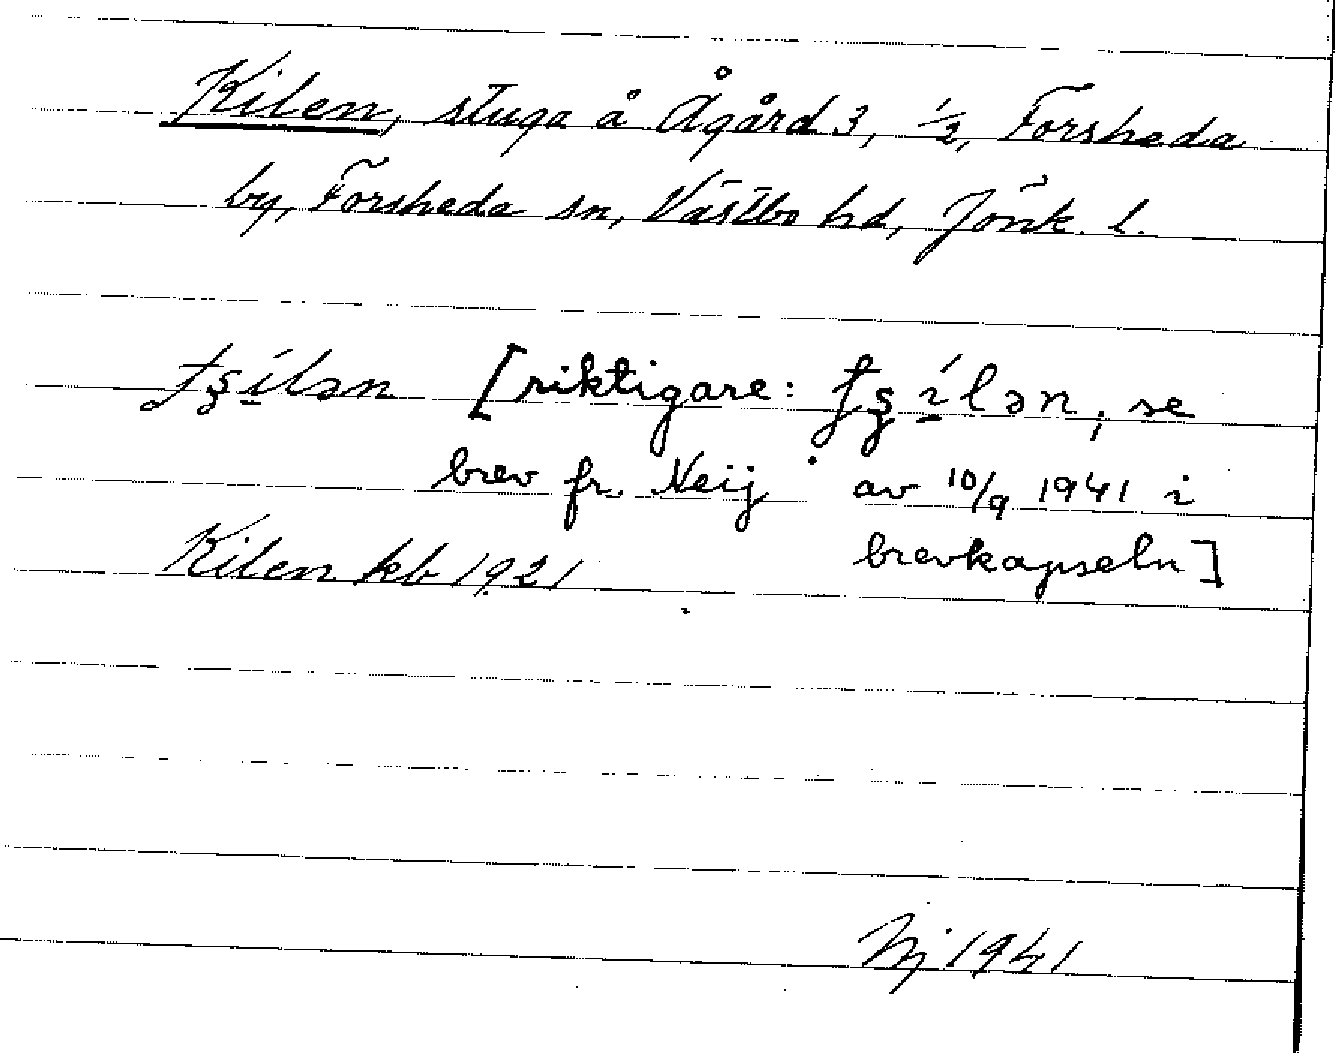 Kilen, stuga å Ågård 3, 1/2, Forsheda
by, Forsheda sn, Västbo hd, Jönk. l.
[riktigare: se
brev fr. Neij av 10/9 1941 i
brevkapseln]
Kilen kb 1921
Nj 1941